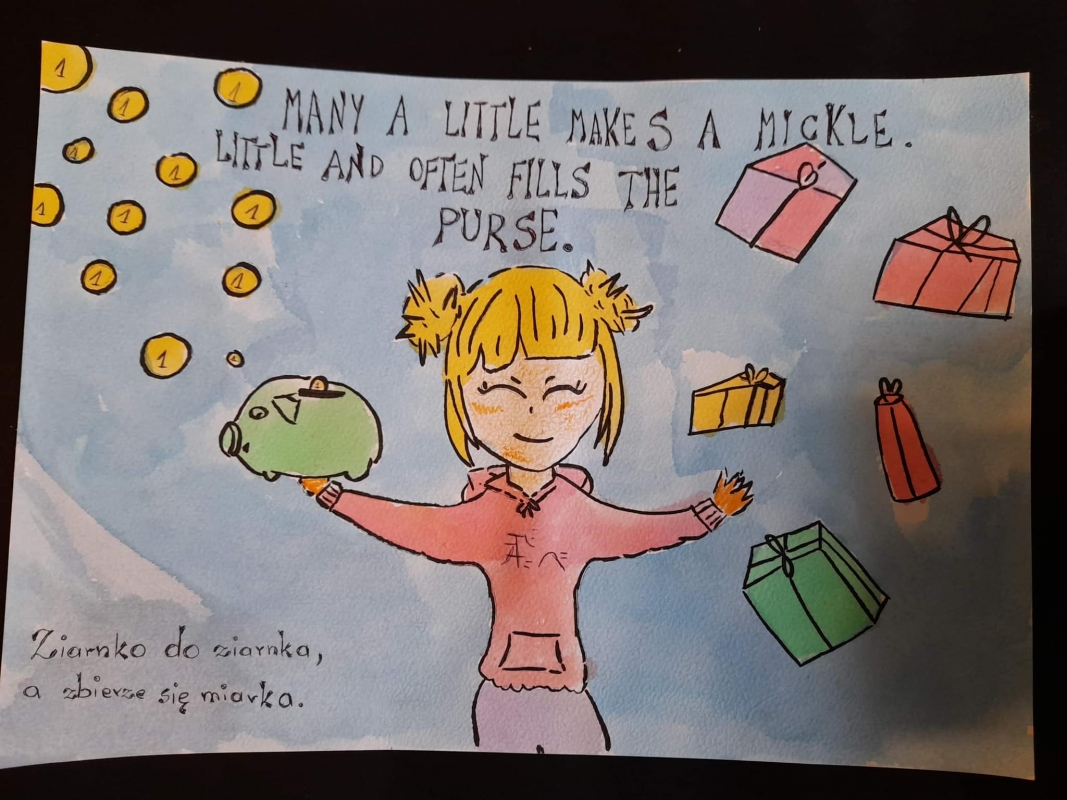 MANY A LITTLE MAKES A MICKLE.
LITTLE AND OFTEN FILLS THE
PURSE.
1
1
1
1
1
1
1
1
1
1
1
Ziarnko do ziarnka,
a zbierze się miarka.